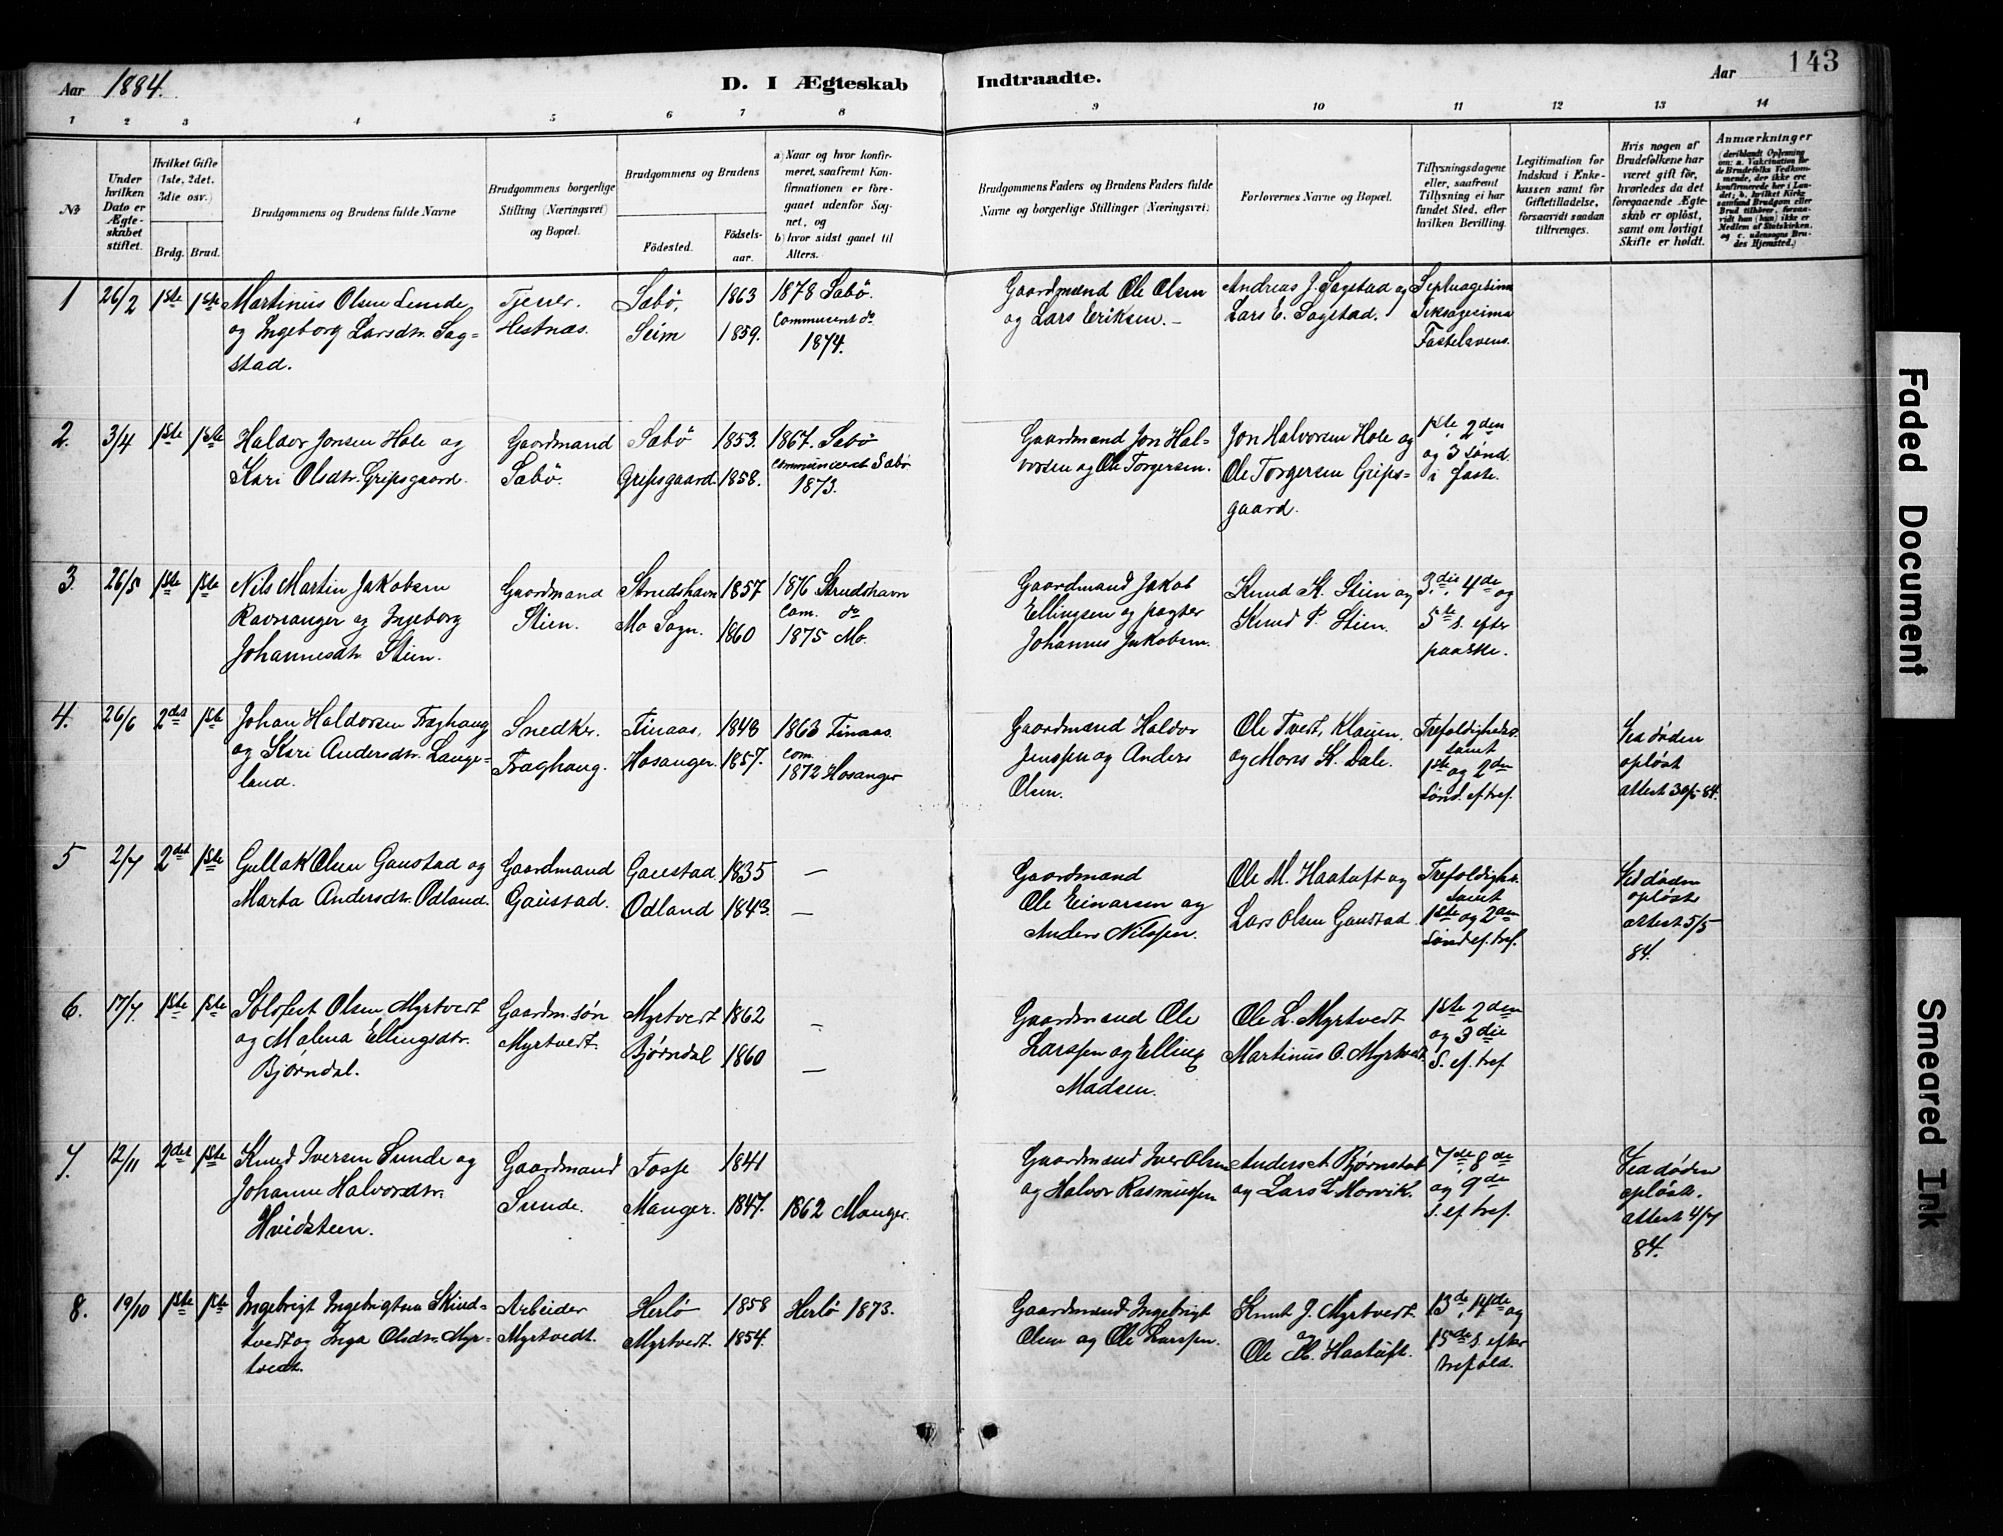 Aar 1884.
D. I Ægteskab Indtraadte.
Aar
143
1 2 3 4 5 6 7 8 9 10 11 12 13 14
No
Under hvilken Dato er Ægteskabet stiftet.
Hvilket Gifte (1ste, 2det, 3die osv.)
Brdg. Brud.
Brudgommens og Brudens fulde Navne
Brudgommens borgerlige Stilling (Næringsvei) og Bopæl.
Brudgommens og Brudens
Födested.
Födselsaar.
a) Naar og hvor konfirmeret, saafremt Konfirmationen er foregaaet udenfor Sognet, og
b) hvor sidst gaaet til Alters.
Brudgommens Faders og Brudens Faders fulde Navne og borgerlige Stillinger (Næringsvei)
Forlovernes Navne og Bopæl.
Tillysningsdagene eller, saafremt Tillysning ei har fundet Sted, efter hvilken Bevilling.
Legitimation for Indskud i Enkekassen samt for Giftetilladelse, forsaavidt saadan tiltrænges.
Hvis nogen af Brudefolkene har været gift för, hvorledes da det foregaaende Ægteskab er oplöst, samt om lovligt Skifte er holdt.
Anmærkninger
(deriblandt Oplysning om: a. Vakcination for de Brudefolks Vedkommende, der ikke ere konfirmerede her i Landet; b. hvilket Kirkesamfund Brudgom eller Brud tilhörer, forsaavidt han (hun) ikke er Medlem af Statskirken, og c. udensogns Brudes Hjemsted.)
1 26/2 1ste 1ste
Martinus Olsen
og Ingeborg Larsdtr. Sag-
stad.
Tjener.
Hestnæs.
Sæbö,
Seim
1863
1859.
1878 Sæbö.
Communicent do
1874.
Gaardmænd Ole Olsen
og Lars Eriksen. –
Andreas J. Sagstad og
Lars E. Sagstad.
Septuagesima
Seksagesima
Fastelavens.
2. 3/4 1ste 1ste
Haldor Jonsen Hole og
Kari Olsdtr. Gripsgaard.
Gaardmand
Sæbö.
Sæbö
Gripsgaard.
1853.
1858.
1867. Sæbö
Communicent Sæbö
1873.
Gaardmænd Jon Hal-
vorsen og Ole Torgersen.
Jon Halvorsen Hole og
Ole Torgersen Grips-
gaard.
1ste, 2den
og 3 Sönd.
i faste.
3. 26/5 1ste 1ste
Nils Martin Jakobsen
Ravnanger og Ingeborg
Johannesdtr. Stien.
Gaardmand
Stien.
Strudshavn
Mo Sogn.
1857
1860
1876 Strudshavn
Com. do
1875 Mo.
Gaardmand Jakob
Ellingsen og pagter
Johannes Jakobsen.
Knud K. Stien og
Knud P. Stien.
3die, 4de og
5te s. efter
paaske.
4. 26/6 2det 1ste
Johan Haldorsen Træghaug
og Kari Andersdtr. Lange-
land.
Snedker.
Træghaug.
Finaas,
Hosanger.
1848
1857.
1863 Finaas.
com.
1872 Hosanger
Gaardmænd Haldor
Jenssen og Anders
Olsen.
Ole Tvedt, Klauen,
og Mons K. Dale.
Trefoldigheds.
samt
1ste og 2den
Sönd. ef. tref.
Ved döden
oplöst
attest 30/5 84.
5 2/7 2det 1ste
Gullak Olsen Gaustad og
Marta Andersdtr. Odland.
Gaardmand
Gaustad.
Gaustad.
Odland
1835
1843.
—
—
Gaardmænd
Ole Einarsen og
Anders Nilssen.
Ole M. Haatuft og
Lars Olsen Gaustad.
Trefoldigh.
samt
1ste og 2den
Sönd ef. tref.
Ved döden
oplöst
attest 5/5
84.
6. 17/7. 1ste 1ste
Olsen Myrtvedt
og Malena Ellingsdtr.
Björndal.
Gaardm.sön
Myrtvedt.
Myrtvedt
Björndal
1862
1860
—
—
Gaardmænd Ole
Larssen og Elling
Madsen.
Ole L. Myrtvedt
Martinus O. Myrtvedt
1ste 2den
og 3die
S. ef. tref.
7. 12/11 2det 1ste
Knud Iversen Sunde og
Johanne Halvorsdtr.
Hvidsteen.
Gaardmand
Sunde.
Fosse
Manger.
1841
1847.
1862 Manger.
Gaardmænd Iver Olsen
og Halvor Rasmussen
Anders A. Björnstad
og Lars L. Horvik.
7de, 8de
og 9de
S. ef. tref.
Ved döden
oplöst.
attest 4/7
84.
8. 19/10 1ste 1ste
Ingebrigt Ingebrigtsen Skind-
tvedt og Inga Olsdtr. Myr-
tvedt.
Arbeider
Myrtvedt.
Herlö
Myrtvedt.
1858
1854.
Herlö 1873.
Gaardmænd Ingebrigt
Olsen og Ole Larssen.
Knut J. Myrtvedt
og
Ole M. Haatuft.
13de, 14de og
15de s. efter
trefold.
Faded Document
Smeared Ink